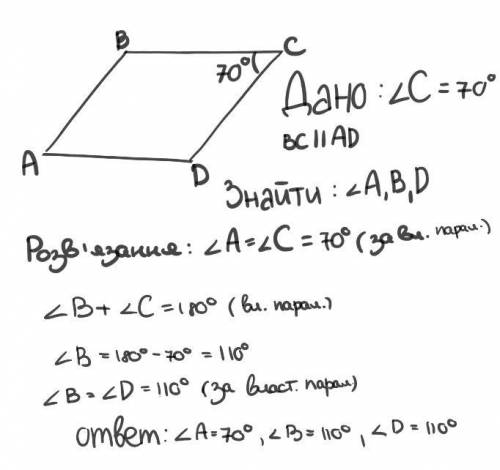 B
C
70°
A
D
Дано : ∠C = 70°
BC || AD
Знайти : ∠A, B, D
Розв'язання : ∠A = ∠C = 70° (за вл. парал.)
∠B + ∠C = 180° (вл. парал.)
∠B = 180° - 70° = 110°
∠B = ∠D = 110° (за власт. парал)
ответ : ∠A = 70° , ∠B = 110° , ∠D = 110°